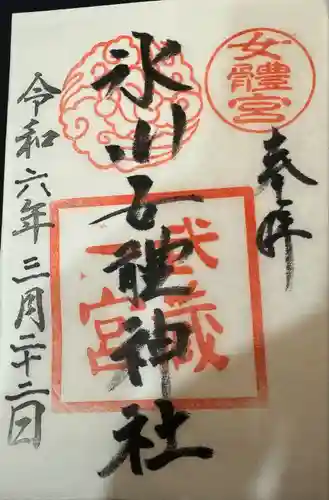 奉拝
女體宮
氷川女體神社
武蔵
一宮
令和六年三月二十二日